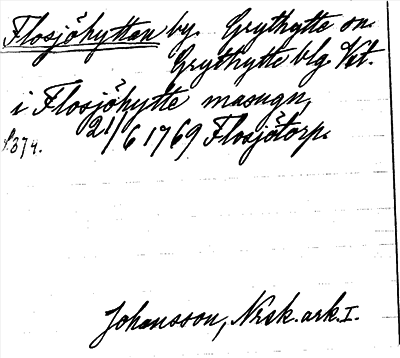 Flosjöhyttan by. Grythytte sn.
Grythytte blg. Vst.
i Flosjöhytte masugn,
s. 374. 21/6 1769 Flosjötorp.
Johansson, Nrsk. ark. I.